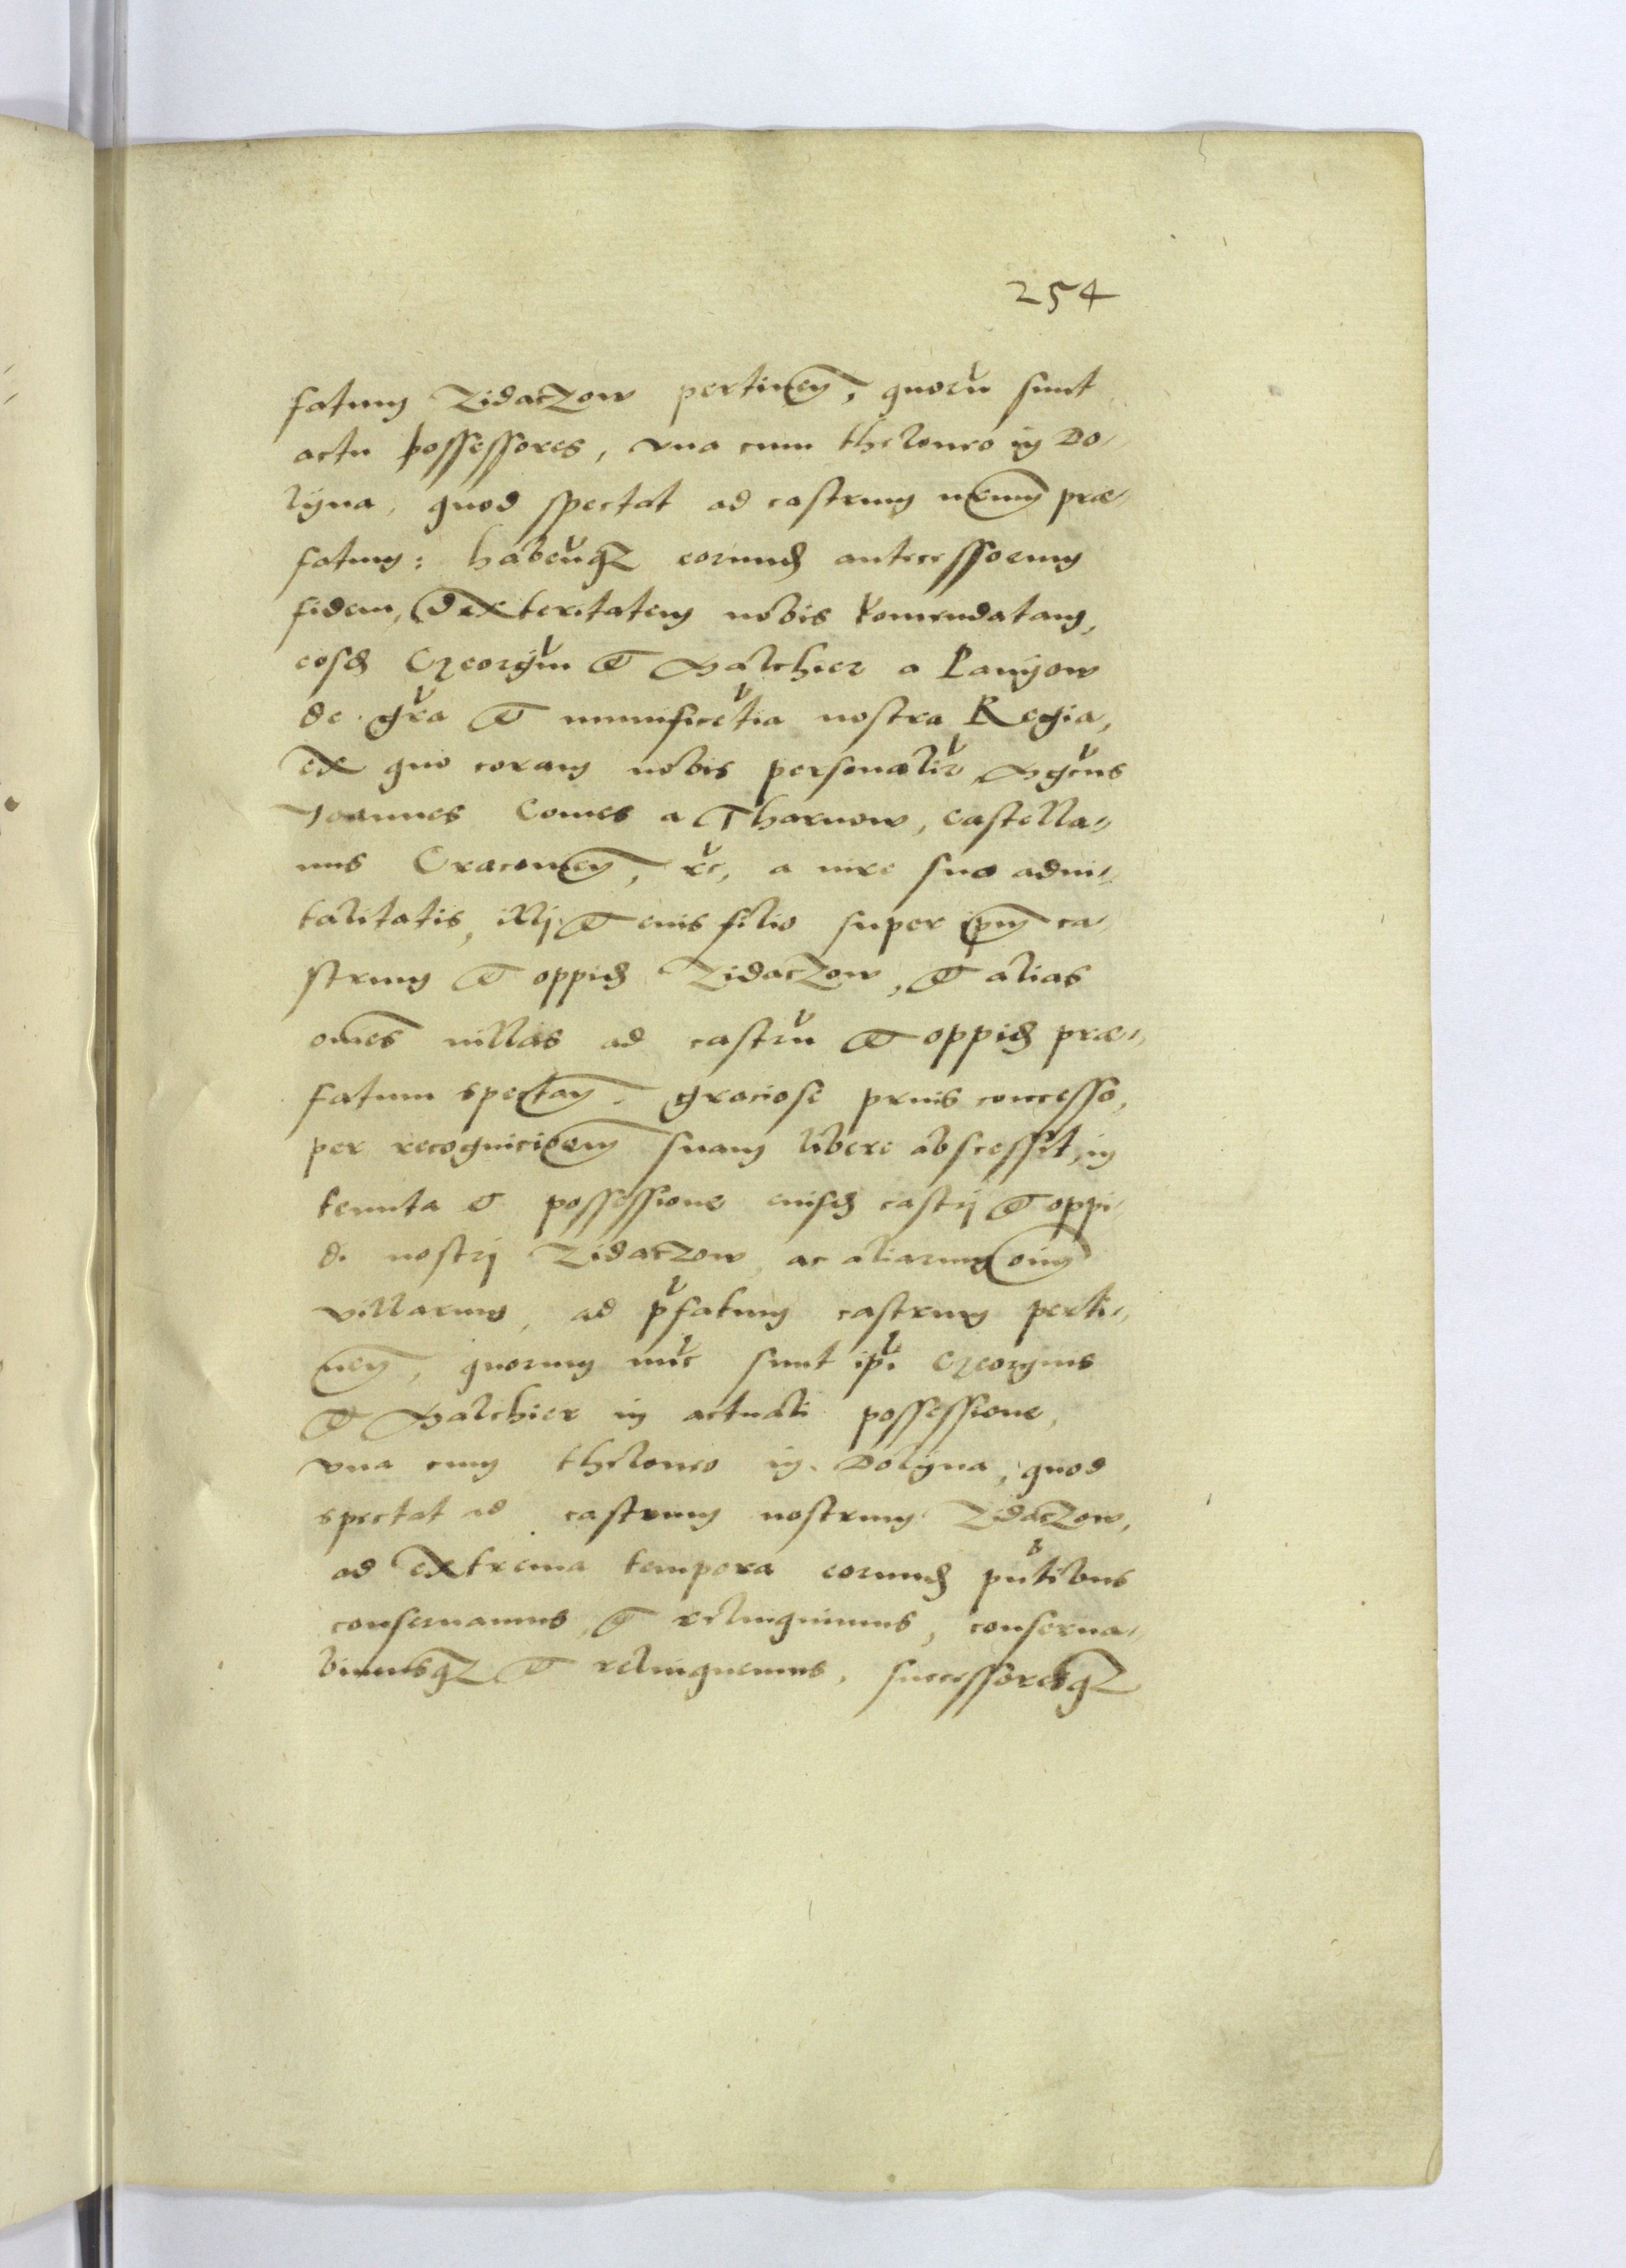 254
fatum Zidaczow pertinen̄, quorū sunt
actu possessores, vna cum theloneo in Do-
lyna, quod spectat ad castrum n̄rum præ-
fatum: habentq3 eorundē antecessorum
fidem, dexteritatem nobis comendatam,
eosdē Georgiū et Balcher a Lanyow
de gr̄a et munificētia nostra Regia,
ex quo coram nobis personalīr Mgcūs
Joannes Comes a Tharnow, castella-
nus Cracovien̄, etc, a iure suo advi-
talitatis, illj et eius filio super ip̄m ca
strum et oppidū Zidaczow, et alias
om̄es villas ad castrū et oppidū præ-
fatum spectan̄. graciose prius concesso,
per recognicioēm suam libere abscessit, in
tenuta et possessione eiusdē castrj et oppi-
di nostrj Zidaczow, ac aliarum om̄ium
villarum, ad p̄fatum castrum perti-
nen̄, quorum nūc sunt ip̄i Georgius
et Balchier in actuali possessione,
vna cum theloneo in Dolyna, quod
spectat ad castrum nostrum Zidaczow,
ad extrema tempora eorundē pn̄tibus
conseruamus, et relinquimus, conserua-
bimusq3 et relinquemus, successoresq3